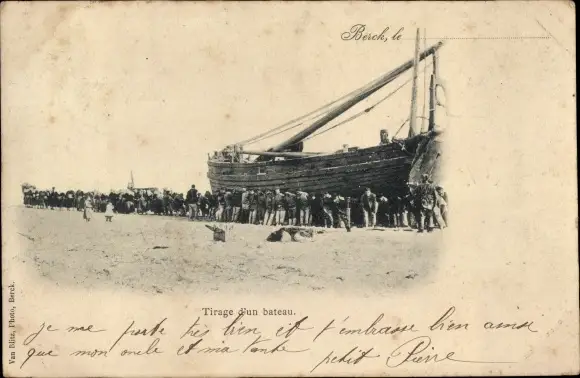 Berck, le
Tirage d'un bateau.
je me porte très bien et t'embrasse bien ainsi
que mon oncle et ma tante petit Pierre
Van Blitz, Photo, Berck.